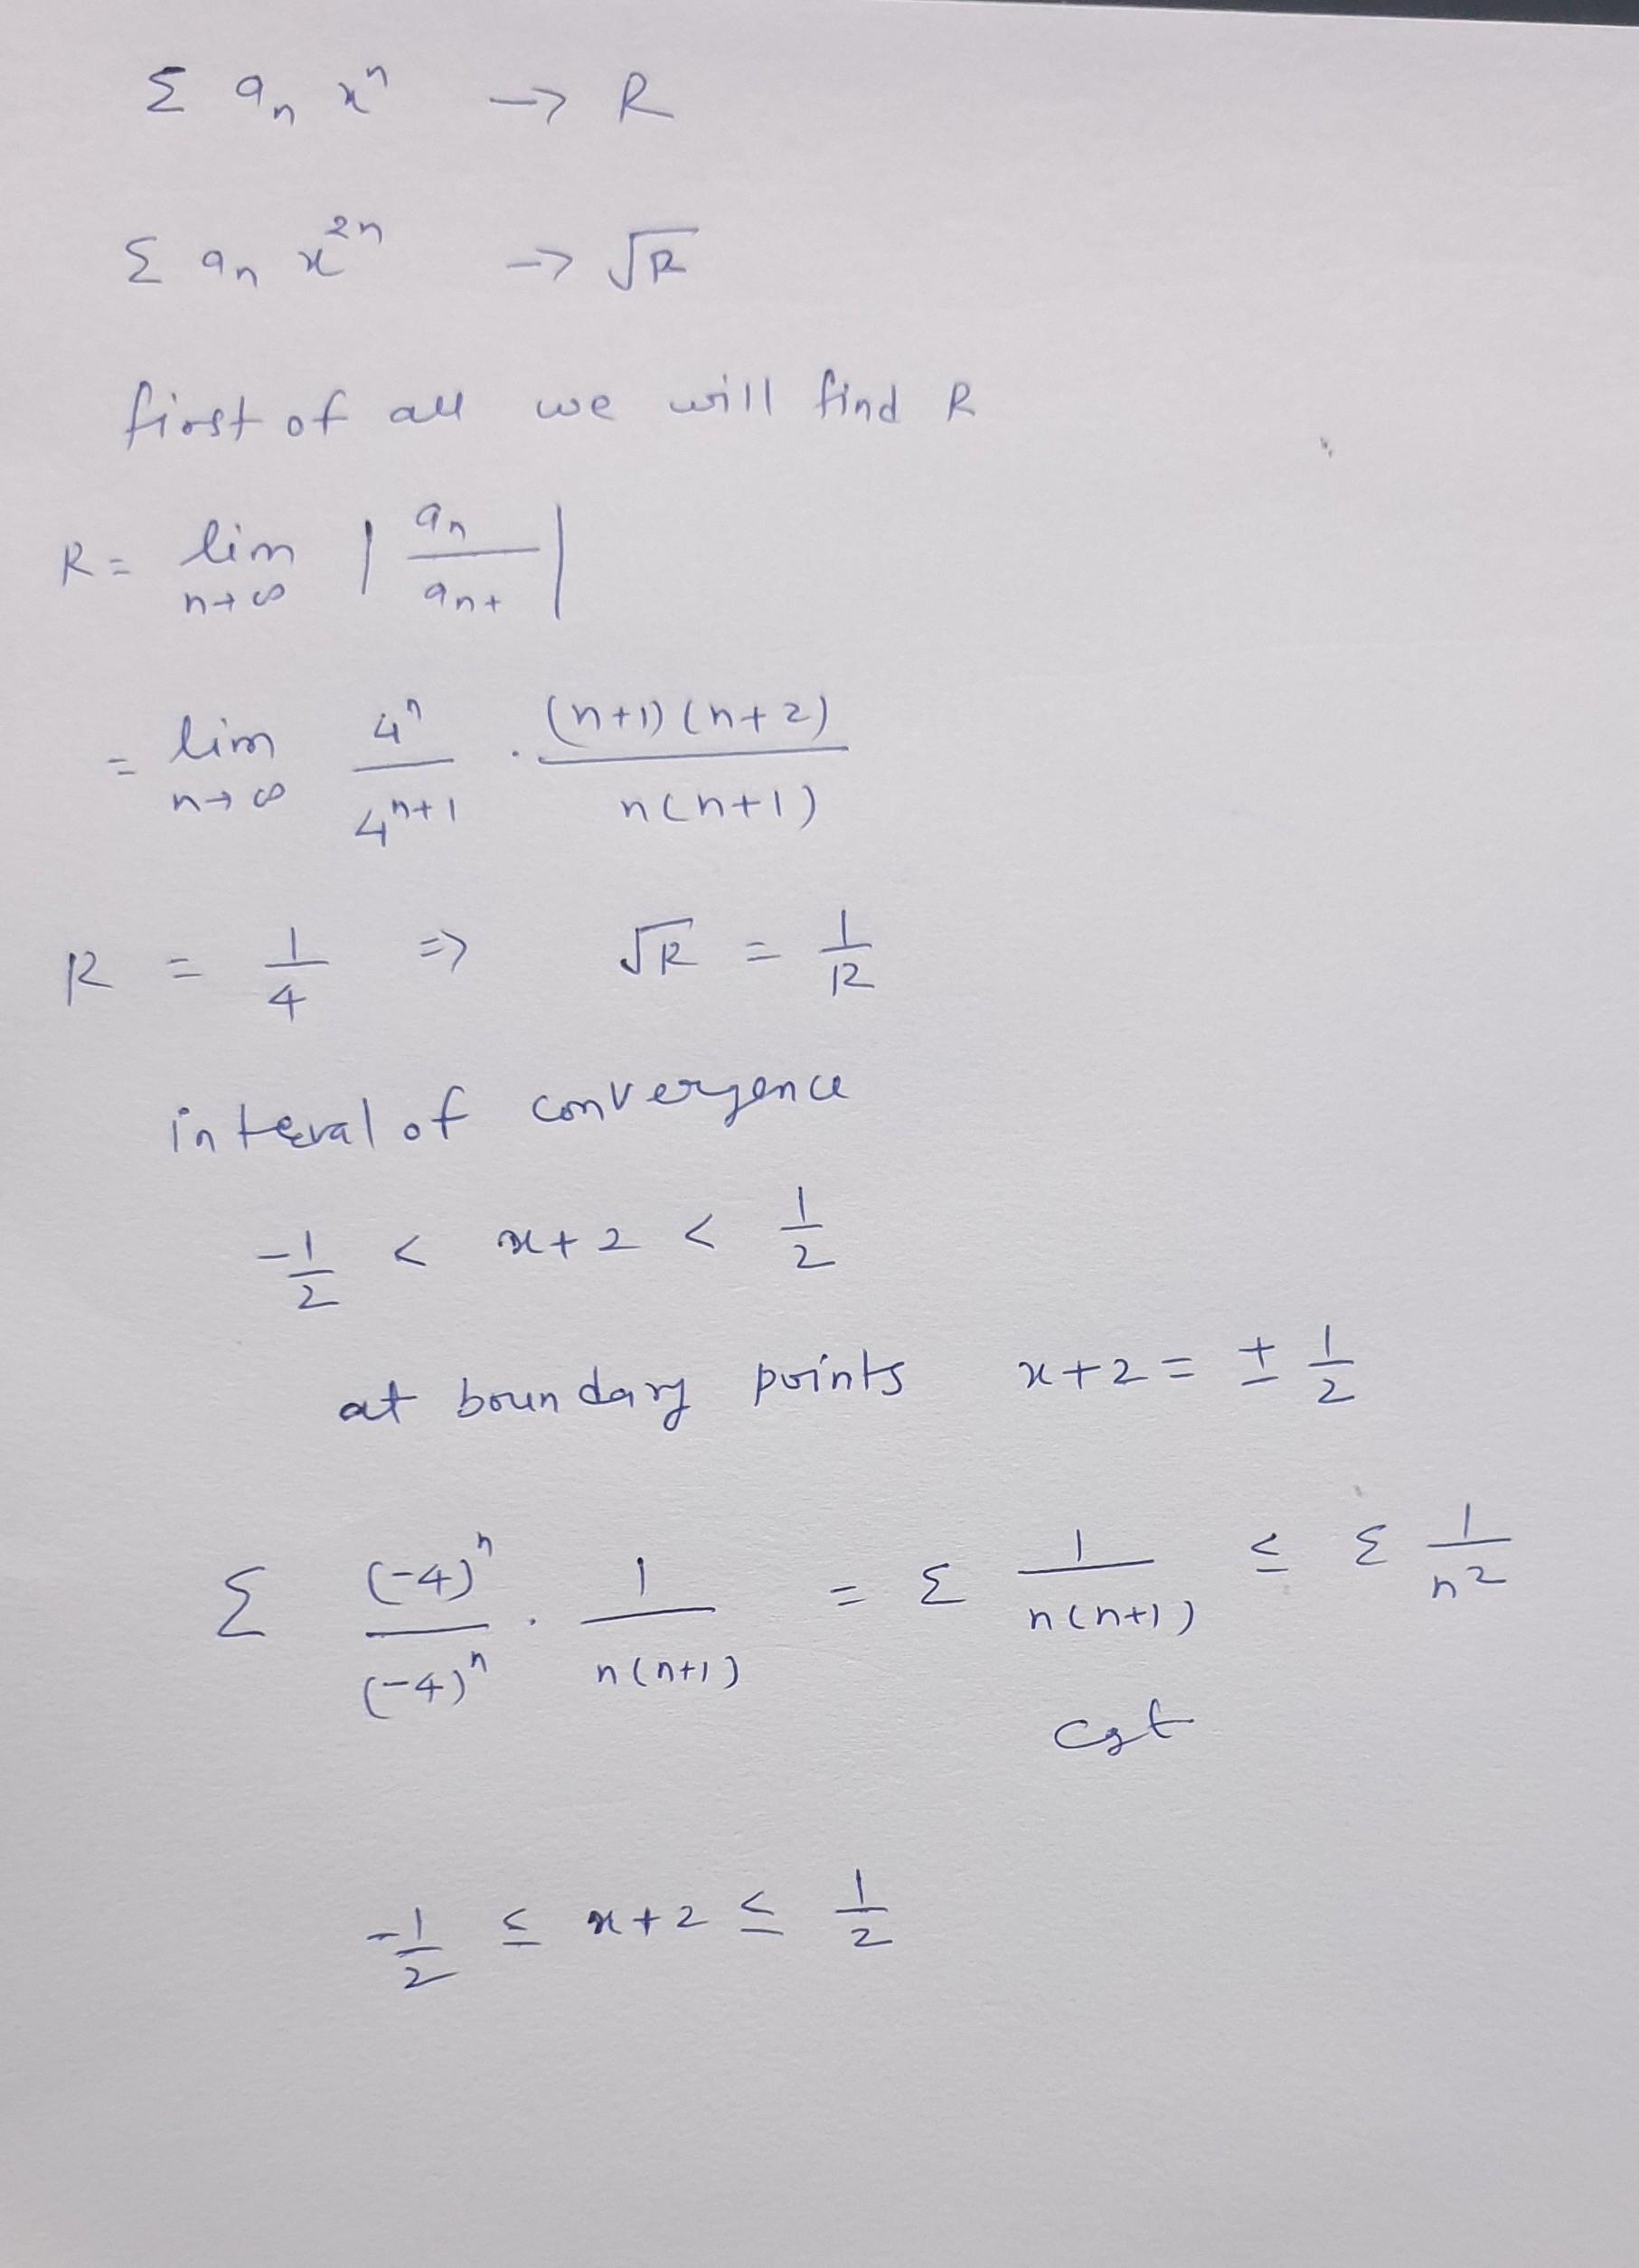 Σ aₙ xⁿ → R
Σ aₙ x²ⁿ → √R
first of all we will find R
R = lim n→∞ | aₙ / aₙ₊ |
= lim n→∞ 4ⁿ / 4ⁿ⁺¹ · (n+1)(n+2) / n(n+1)
R = 1/4 ⇒ √R = 1/R
interval of convergence
-1/2 < x+2 < 1/2
at boundary points x+2 = ± 1/2
Σ (-4)ⁿ / (-4)ⁿ · 1 / n(n+1) = Σ 1 / n(n+1) ≤ Σ 1 / n²
cgt
-1/2 ≤ x+2 ≤ 1/2